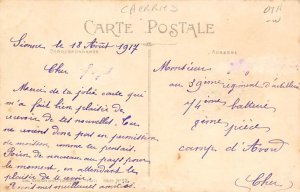 CARTE POSTALE
CORRESPONDANCE
ADRESSE
le 18 Août 1917
Cher
Merci de ta jolie carte qui
m'a fait bien plaisir de
recevoir de tes nouvelles. Tu
ne vient donc pas en permission
de moisson comme tu pensait.
Rien de nouveau au pays pour
le moment, en attendant le
plaisir de te revoir
meilleures amitiés
Monsieur
au 3 régiment d'artillerie
batterie
pièce
camp d'Avord
Cher